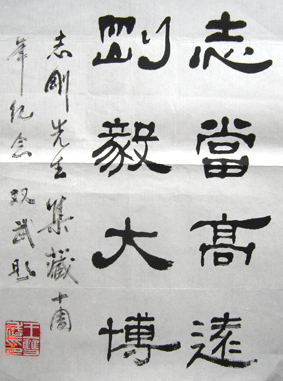 志當高遠
剛毅大博
志剛先生集藏十周
年纪念 双武题